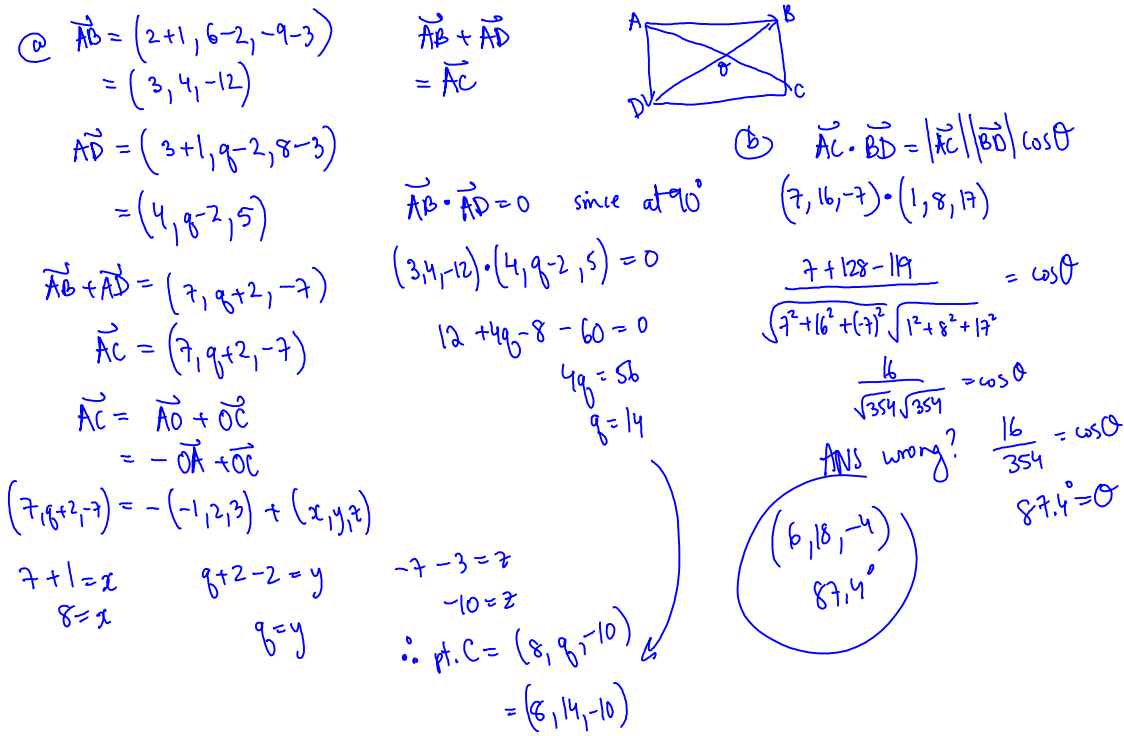 ⓐ AB⃗ = (2+1, 6-2, -9-3)
= (3, 4, -12)
AD⃗ = (3+1, q-2, 8-3)
= (4, q-2, 5)
AB⃗ + AD⃗ = (7, q+2, -7)
AC⃗ = (7, q+2, -7)
AC⃗ = AO⃗ + OC⃗
= -OA⃗ + OC⃗
(7, q+2, -7) = -(-1, 2, 3) + (x, y, z)
7+1 = x
8 = x
q+2-2 = y
q = y
-7-3 = z
-10 = z
∴ pt. C = (8, q, -10)
= (8, 14, -10)
AB⃗ + AD⃗
= AC⃗
AB⃗ • AD⃗ = 0 since at 90°
(3, 4, -12) • (4, q-2, 5) = 0
12 + 4q - 8 - 60 = 0
4q = 56
q = 14
A B
θ
D C
ⓑ AC⃗ • BD⃗ = |AC⃗||BD⃗| cosθ
(7, 16, -7) • (1, 8, 17)
7+128-119 / √7²+16²+(-7)² √1²+8²+17² = cosθ
16 / √354 √354 = cosθ
16 / 354 = cosθ
87.4° = θ
ANS wrong?
(6, 18, -4)
87.4°